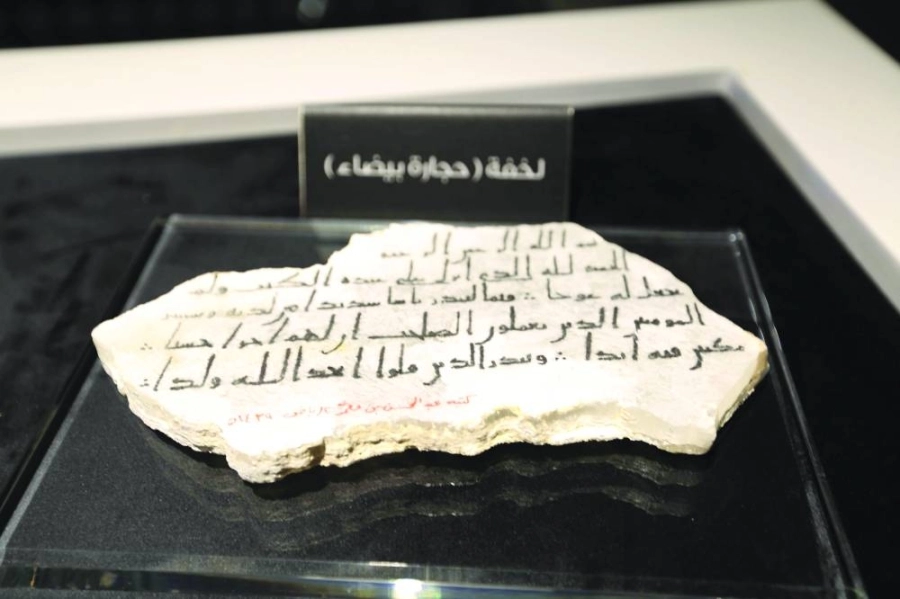 لخفة (حجارة بيضاء)
بسم الله الرحمن الرحيم
الحمد لله الذي انزل على عبده الكتب ولم
يجعل له عوجا ∴ قيما لينذر باسا شديدا من لدنه ويبشر
المومنين الذين يعملون الصلحت ان لهم اجرا حسنا ∴
مكثين فيه ابدا ∴ وينذر الذين قالوا اتخذ الله ولدا ∴
كتبه عبد